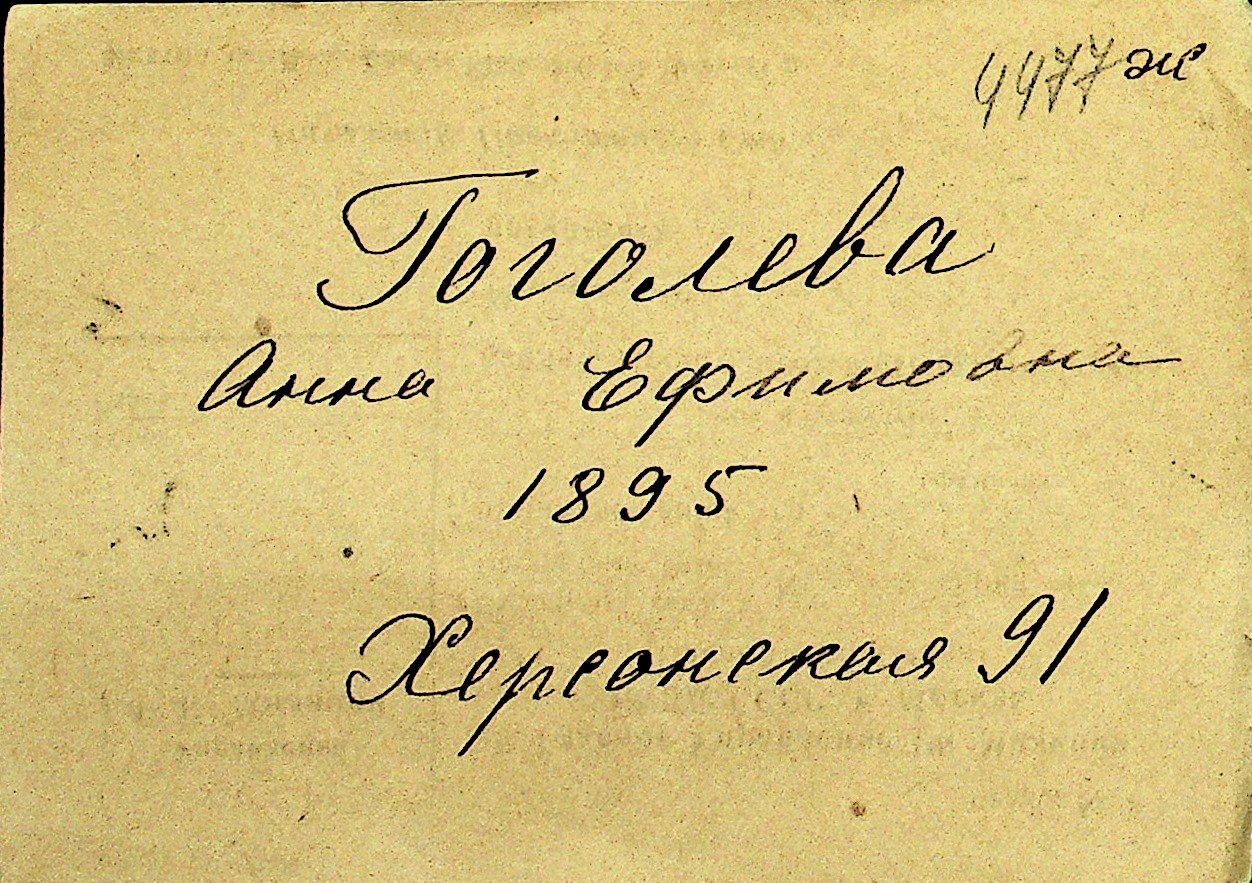 4477 ж
Гоголева
Анна Ефимовна
1895
Херсонская 91